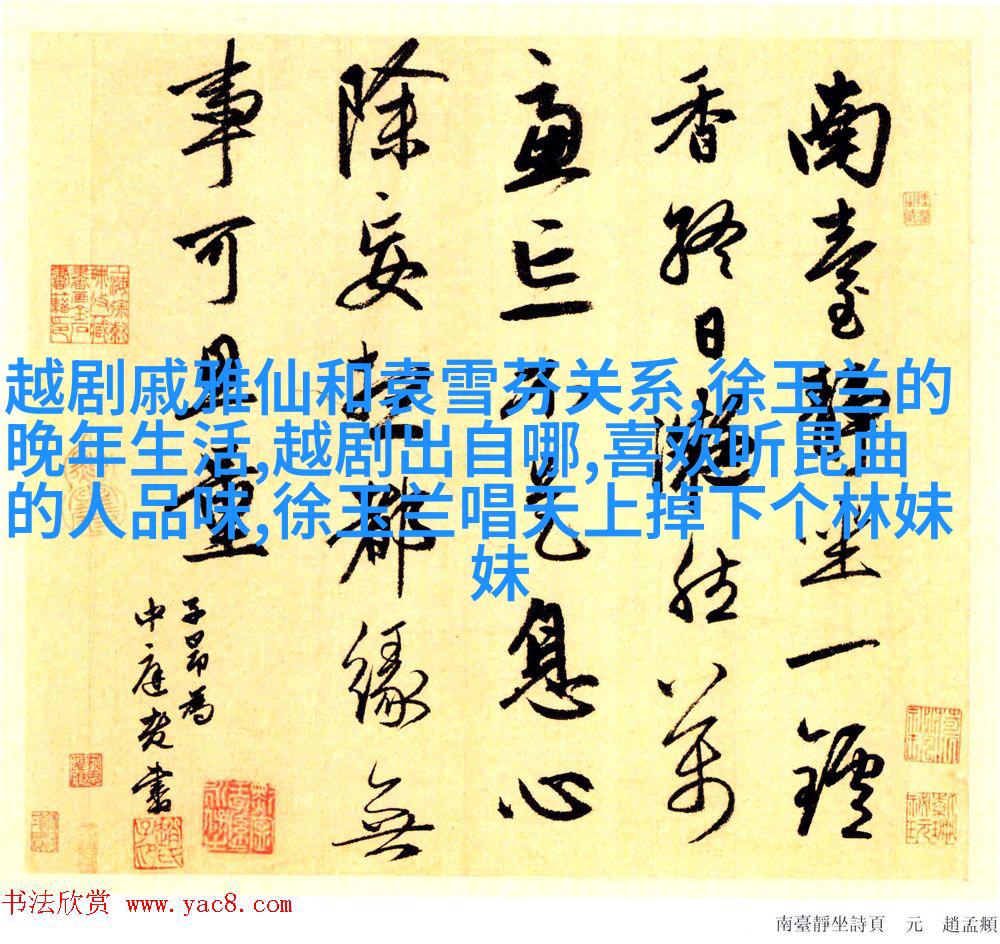 南臺靜坐一鑪
香終日凝然萬
慮亡不是息心
除妄想都緣無
事可思量
子昂為
中庭老書
越剧戚雅仙和袁雪芬关系,徐玉兰的
晚年生活,越剧出自哪,喜欢听昆曲
的人品味,徐玉兰唱天上掉下个林妹
妹
书法欣赏 www.yac8.com
南臺靜坐詩頁 元 趙孟頫